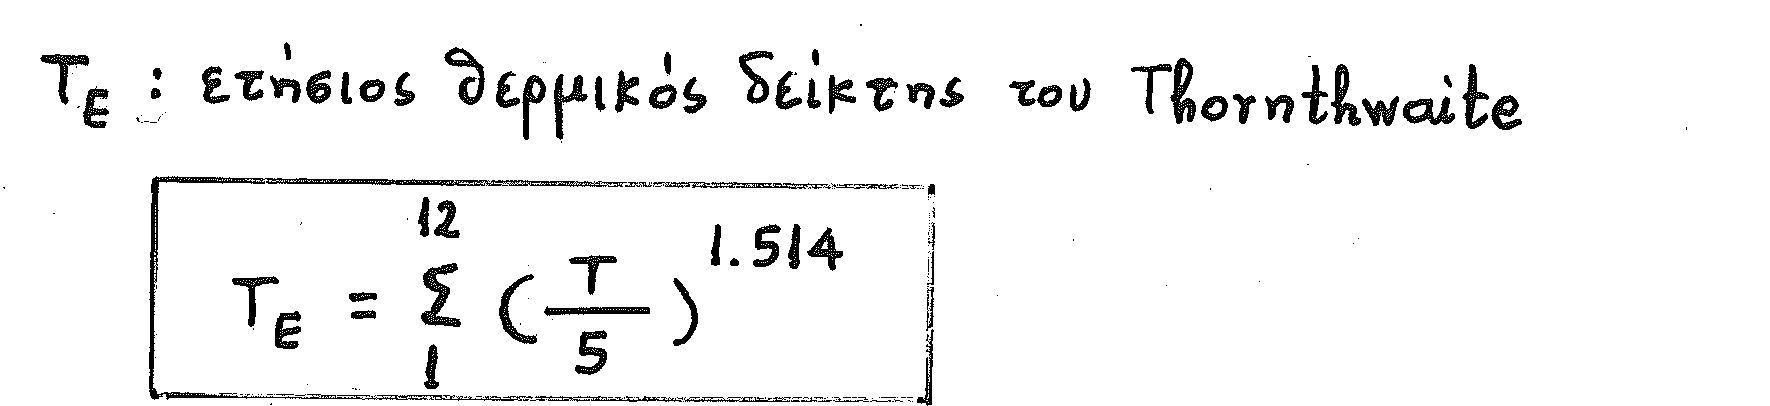 T_E : ετήσιος θερμικός δείκτης του Thornthwaite
T_E = Σ_1^12 (T/5)^1.514